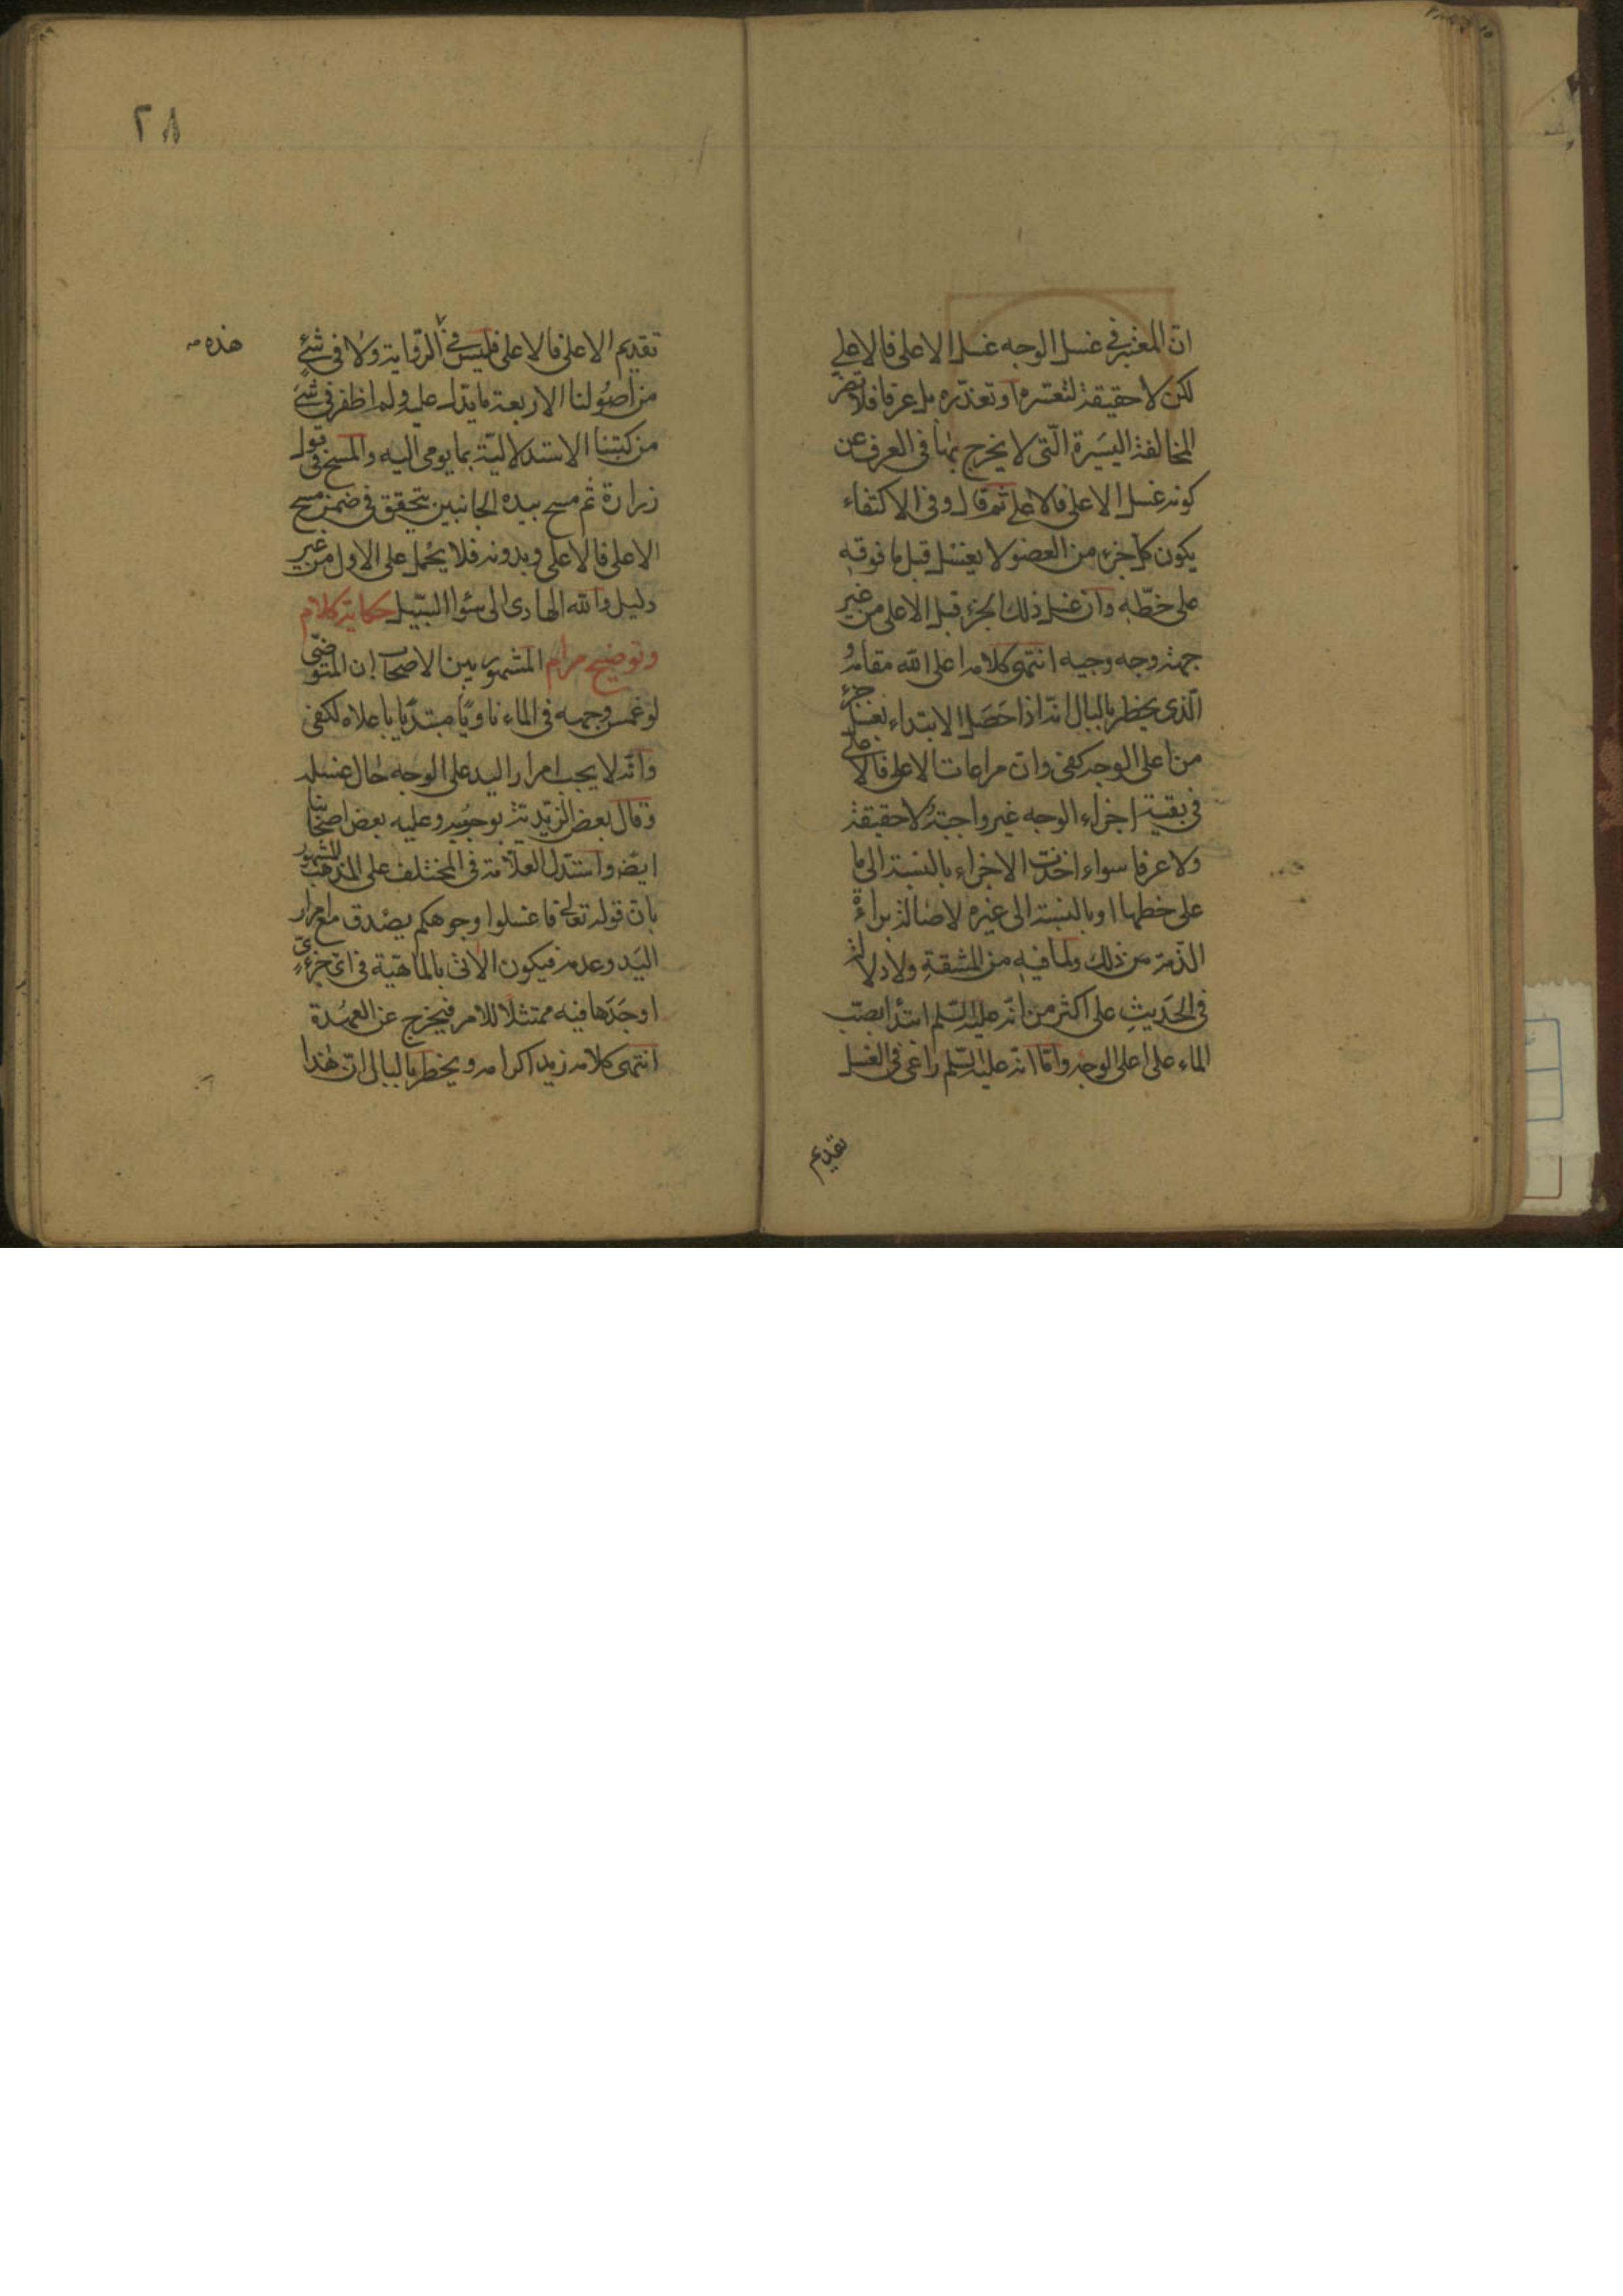 ان المعتبر في غسل الوجه غسل الاعلى فالاعلى
لكن لا حقيقة لتعسره او تعذره بل عرفا فلا تضر
المخالفة اليسيرة التي لا يخرج بها في العرف عن
كونه غسل الاعلى فالاعلى ثم قال وفي الاكتفاء
يكون كل جزء من العضو لا يغسل قبل ما فوقه
على خطه وان غسل ذلك الجزء قبل الاعلى من غير
جهته وجه وجيه انتهى كلامه اعلى الله مقامه و
الذي يخطر بالبال انه اذا حصل الابتداء بغسل جزء
من اعلى الوجه كفى وان مراعات الاعلى فالاعلى
في بقية اجزاء الوجه غير واجبة لا حقيقة
ولا عرفا سواء اخذت الاجزاء بالنسبة الى ما
على خطها او بالنسبة الى غيره لاصالة براءة
الذمة من ذلك ولما فيه من المشقة ولا دلالة
في الحديث على اكثر من انه عليه السلم ابتدأ بصب
الماء على اعلى الوجه واما انه عليه السلم راعى في الغسل
تقديم
٢٨
تقديم الاعلى فالاعلى فليس في الرواية ولا في شئ
هذه
من اصولنا الاربعة ما يدل عليه ولم اظفر في شئ
من كتبنا الاستدلالية بما يومى اليه والمسح في قول
زرارة ثم مسح بيده الجانبين يتحقق في ضمن مسح
الاعلى فالاعلى وبدونه فلا يحمل على الاول من غير
دليل والله الهادى الى سواء السبيل حكاية كلام
وتوضيح مرام المشهور بين الاصحاب ان المتوضى
لو غمس وجهه في الماء ناويا مبتديا باعلاه لكفى
وانه لا يجب امرار اليد على الوجه حال غسله
وقال بعض الزيدية بوجوبه وعليه بعض اصحابنا
ايضا واستدل العلامة في المختلف على المذهب المشهور
بان قوله تعالى فاغسلوا وجوهكم يصدق مع امرار
اليد وعدمه فيكون الاتى بالماهية في اى جزئى
اوجدها فيه ممتثلا للامر فيخرج عن العهدة
انتهى كلامه زيد اكرامه ويخطر بالبال ان هذا